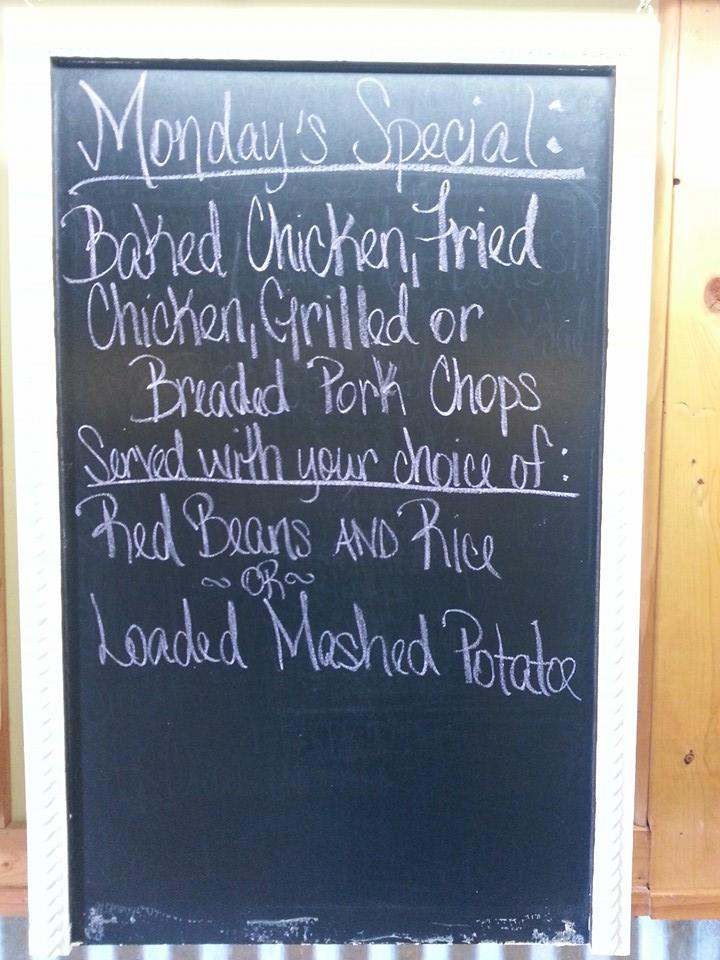 Monday's Special:
Baked Chicken, Fried
Chicken, Grilled or
Breaded Pork Chops
Served with your choice of:
Red Beans AND Rice
~ OR ~
Loaded Mashed Potatoe